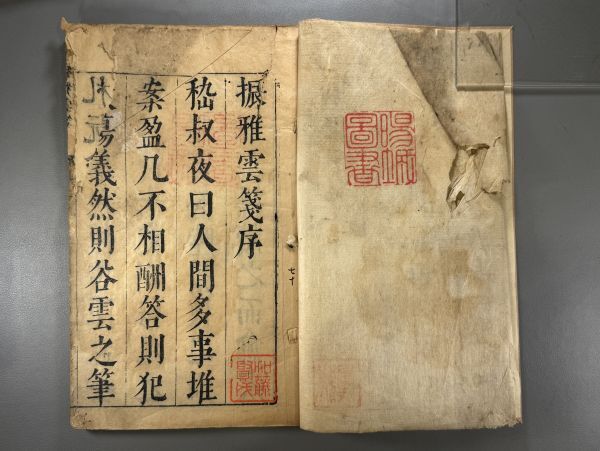 圖書
振雅雲箋序
嵇叔夜曰人間多事堆
案盈几不相酬答則犯
傷義然則谷雲之筆
七十
加藤